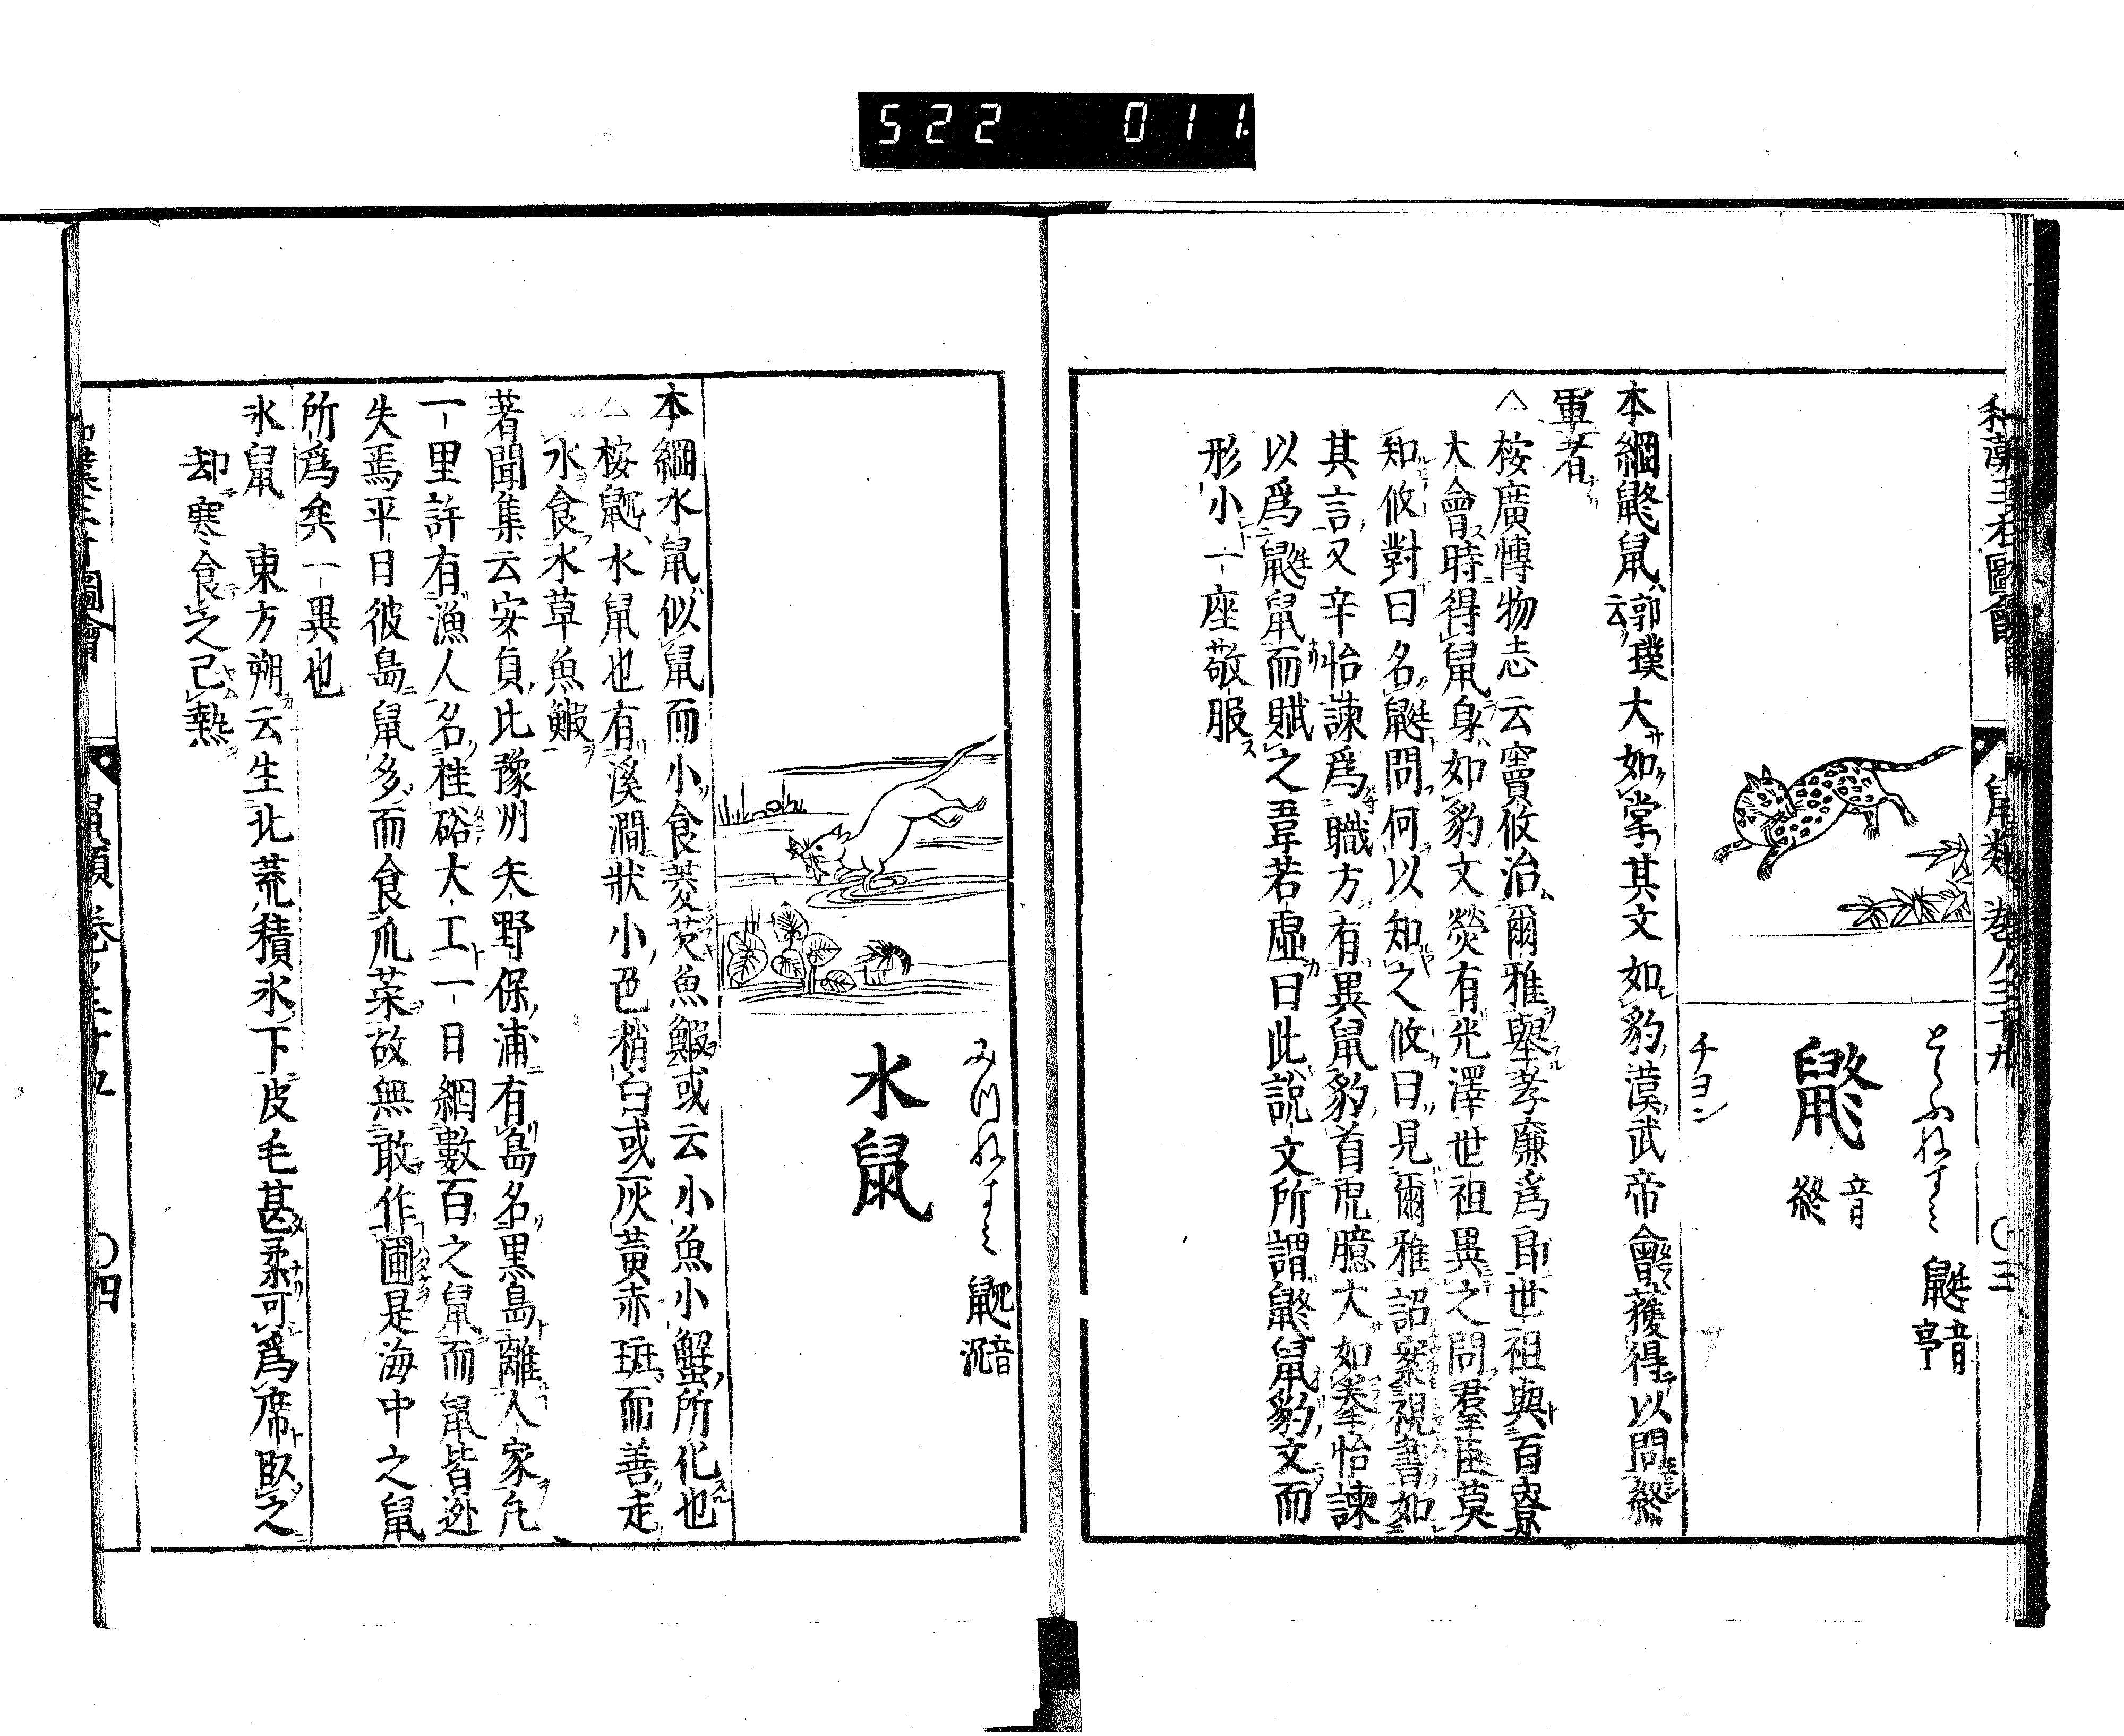 522 011.
和漢三才圖會 鼠類 卷ノ三十九 〇三
とらふねすミ 鼮 音亭
鼨 音終
チヨン
本綱鼨鼠郭璞云大如掌其文如豹漢武帝會獲得以問終
軍者
△桉廣慱物志云竇攸治爾雅舉孝廉爲郎世祖與百寮
大會時得鼠身如豹文熒有光澤世祖異之問羣臣莫
知攸對曰名鼮問何以知之攸曰見爾雅詔案視書如
其言又辛怡諫爲職方有異鼠豹首虎臆大如拳怡諫
以爲鼮鼠而賦之韋若虛曰此說文所謂鼨鼠豹文而
形小一座敬服
みつねすミ 䶃 音沉
水鼠
本綱水鼠似鼠而小食菱芡魚鰕或云小魚小蟹所化也
△桉䶃水鼠也有溪澗狀小色稍白或灰黃赤斑而善走
水食水草魚鰕
著聞集云安貞比豫州矢野保浦有島名黑島離人家凡
一里許有漁人名桂硲大工一日網數百之鼠而鼠皆迯
失焉平日彼島鼠多而食爪菜故無敢作圃是海中之鼠
所爲矣一異也
氷鼠 東方朔云生北荒積氷下皮毛甚柔可爲席臥之
却寒食之已熱
圖會 鼠類 卷ノ三十九 〇四